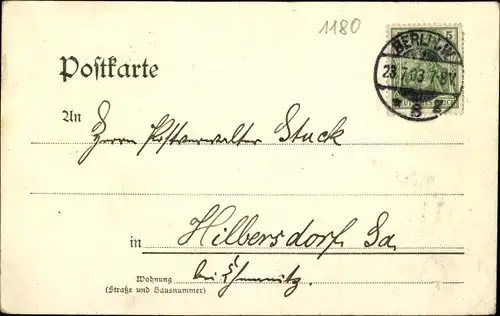 1180
BERLIN.W.
5
23.7.03.7-8V.
* 8 z
DEUTSCHES REICH
Postkarte
An
Herrn Postverwalter Stuck
in Hilbersdorf Sa
bei Chemnitz.
Wohnung
(Straße und Hausnummer)